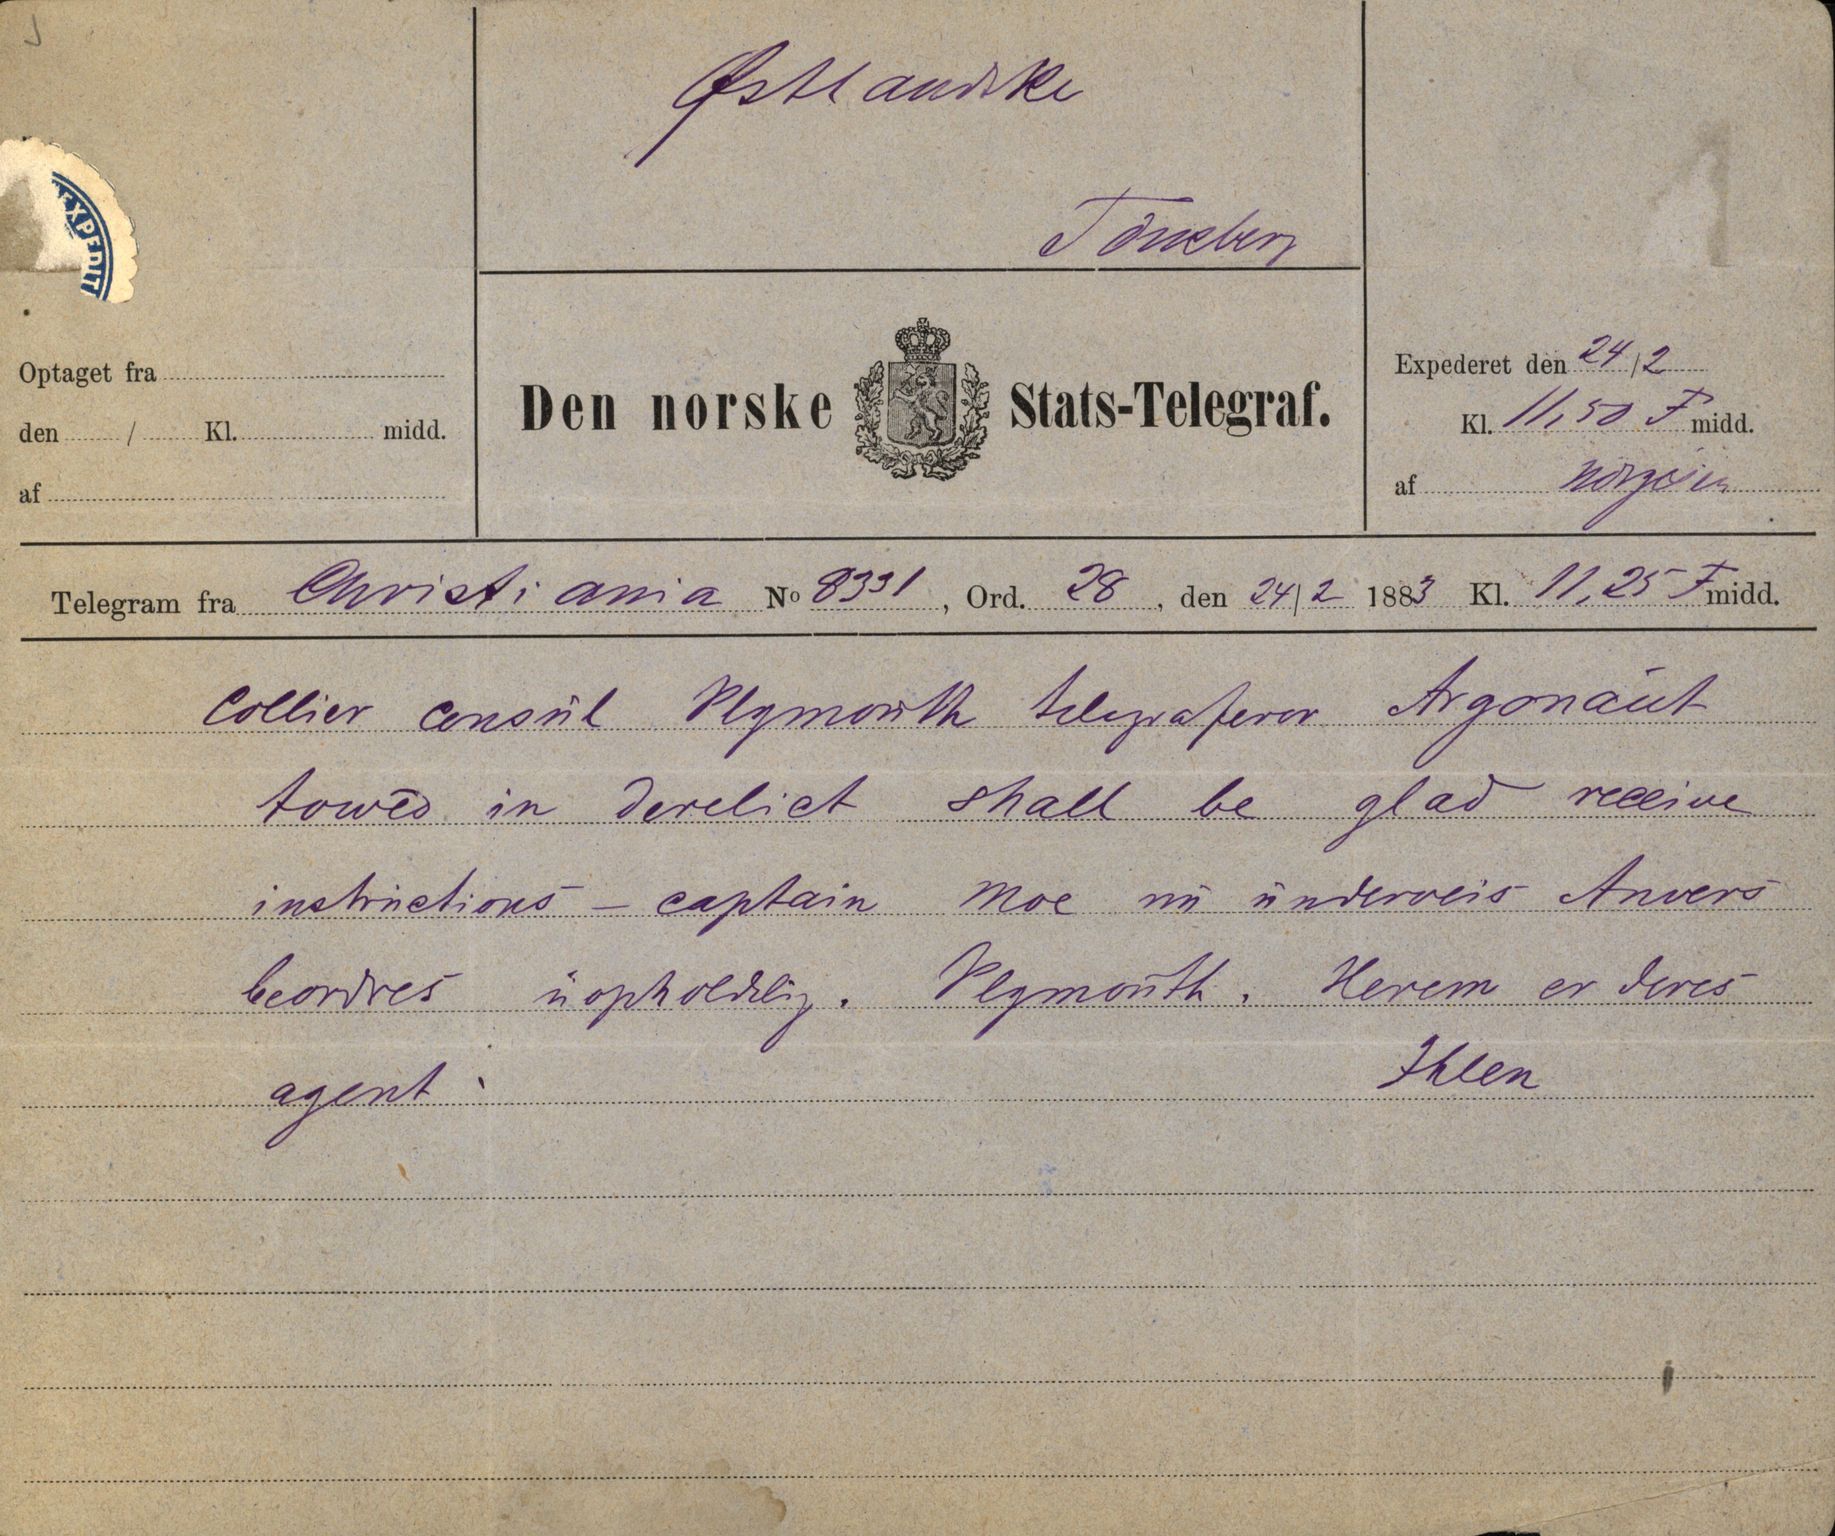 Østlandske
Tönsberg
EXPEDIT
Optaget fra
den / Kl. midd.
af
Den norske Stats-Telegraf.
Expederet den 24/2
Kl. 11,50 F midd.
af
Telegram fra Christiania No 8331, Ord. 28, den 24/2 1883 Kl. 11,25 F midd.
Collier consul Plymouth telegraferer Argonaut
towed in derelict shall be glad receive
instructions – captain Moe nu underveis Anvers
beordres uopholdelig. Plymouth. Herem er deres
agent.
Ihlen